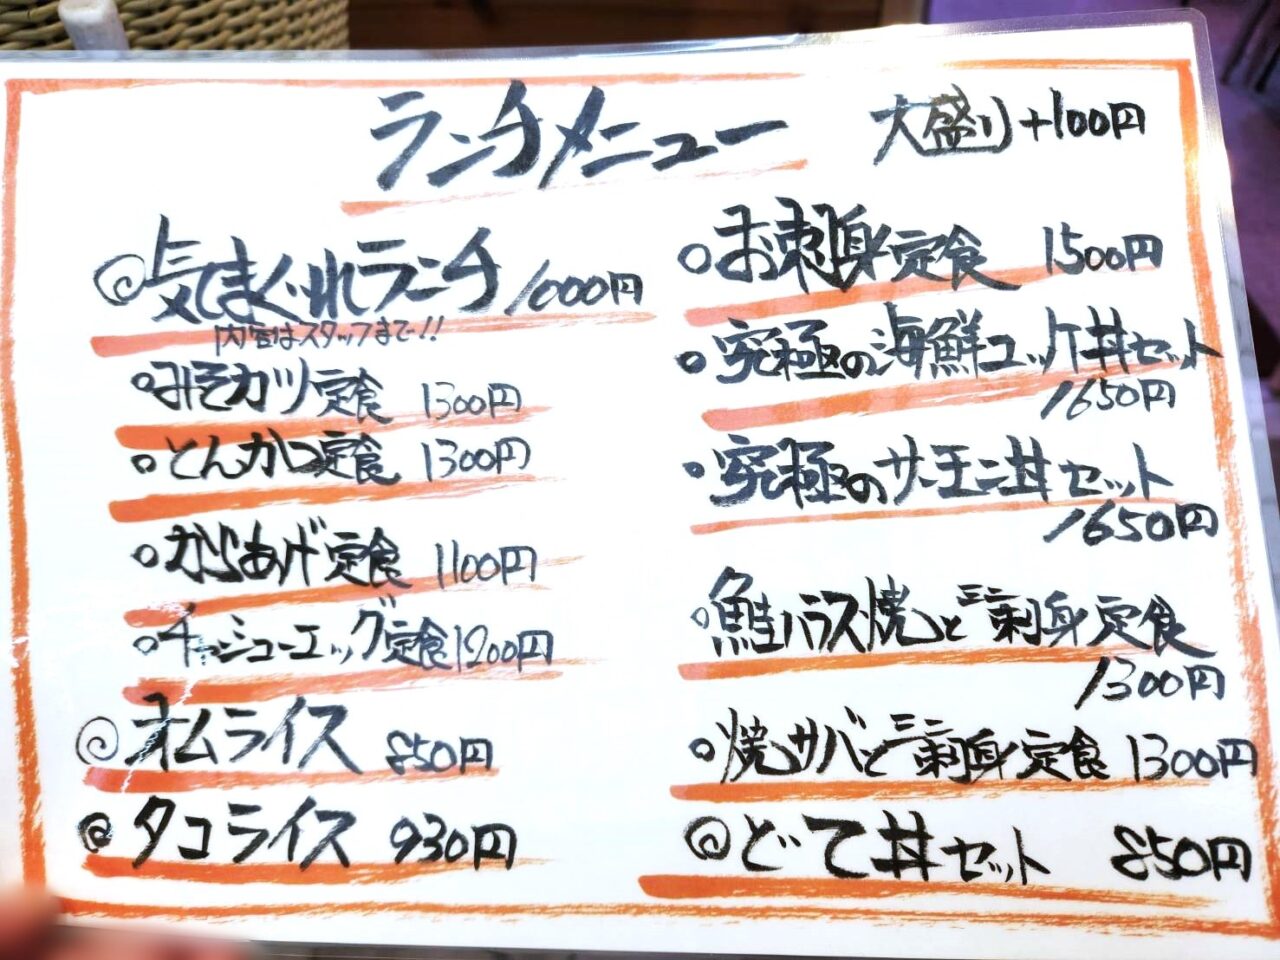 ランチメニュー
大盛り+100円
◎気まぐれランチ 1000円
内容はスタッフまで!!
○みそカツ定食 1300円
○とんかつ定食 1300円
○からあげ定食 1100円
○チャーシューエッグ定食 1200円
◎オムライス 850円
◎タコライス 930円
○お刺身定食 1500円
○究極の海鮮ユッケ丼セット
1650円
○究極のサーモン丼セット
1650円
○鮭ハラス焼とミニ刺身定食
1300円
○焼サバとミニ刺身定食 1300円
◎どて丼セット 850円